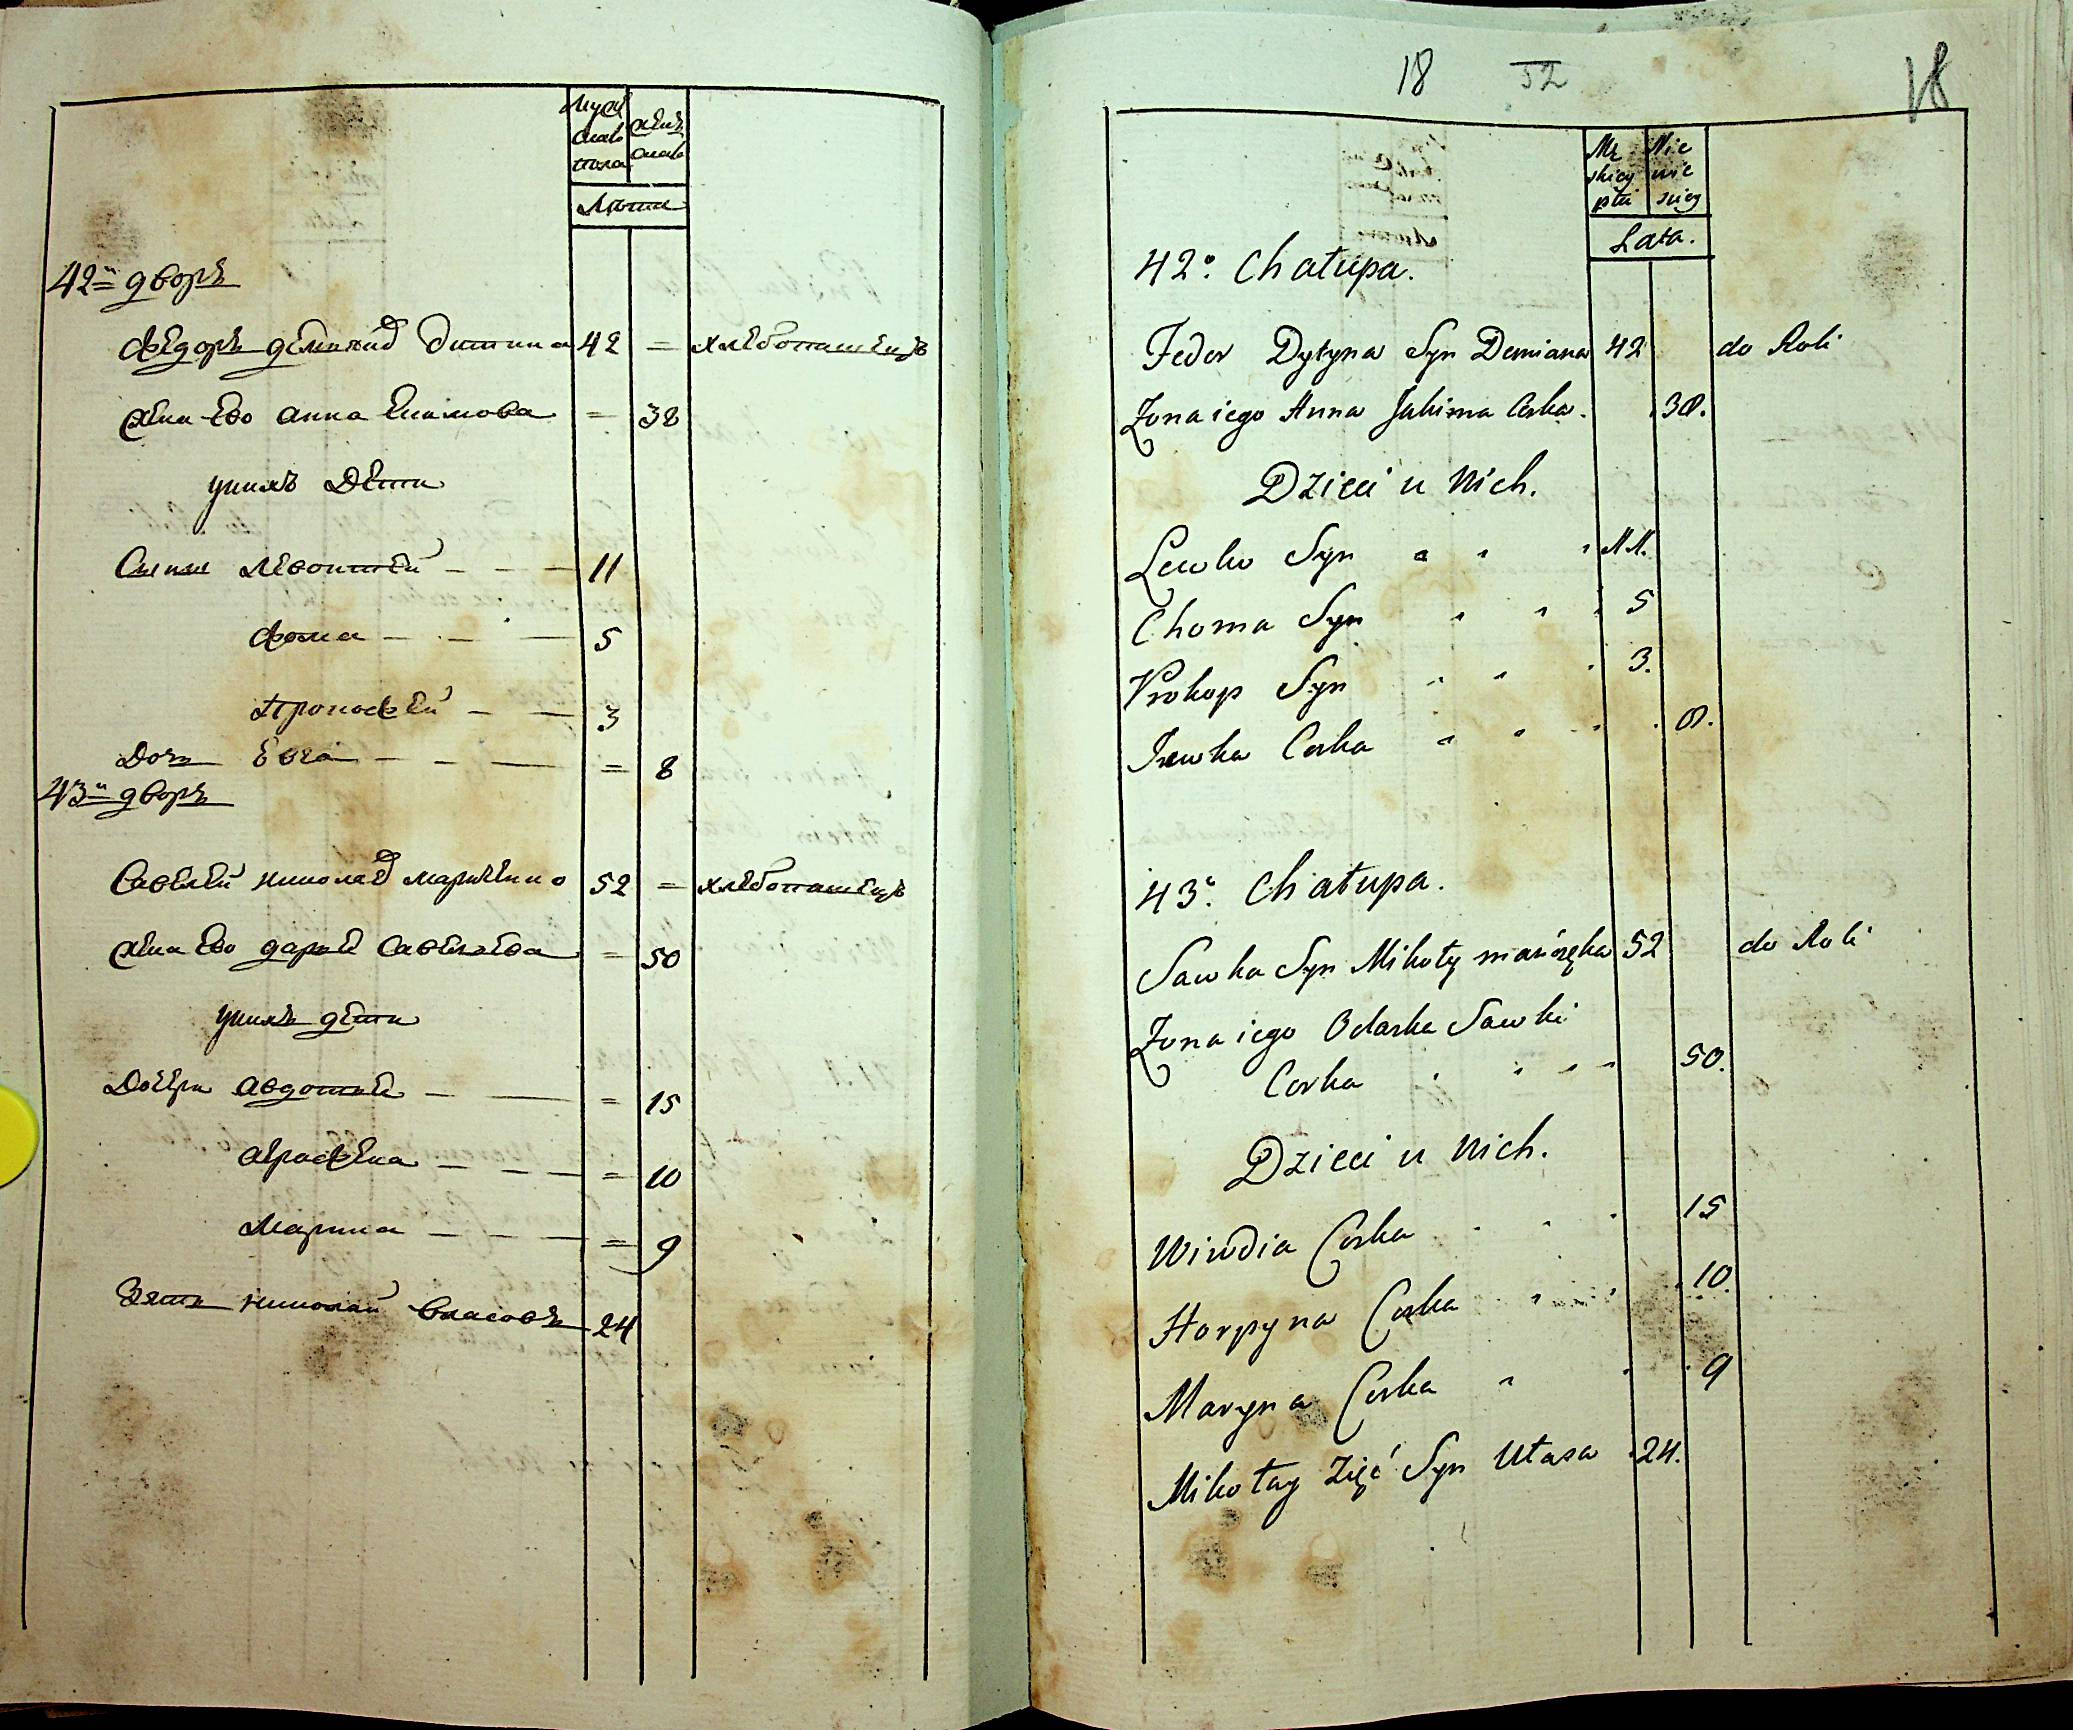 Мужс
каго
пола
женс
каго
Лѣта
42й дворъ
Федоръ демянов дитина 42 = хлебопашецъ
жена Ево анна Екимова = 38
унихъ дети
Сыны Леонтей — — — 11
фома — — — 5
Прокофей — — 3
Дочь Евга — — — = 8
43й дворъ
Савелей николаев марченко 52 = хлебопашецъ
жена Ево дарья Савельева = 50
унихъ дети
Дочери Авдотья — — = 15
Аграфена — — — = 10
Марина — — — = 9
Зять николай власовъ 24
18 52 18
Mę
skiey
płci
Nie
wie
sciey
Lata.
42° Chałupa.
Fedor Dytyna Syn Demiana 42 do Roli
Żona iego Anna Jakima Corka. 38.
Dzieci u Nich.
Lewko Syn " " " 11.
Choma Syn " " " 5
Prokop Syn " " " 3.
Jewka Corka " " " 8.
43° Chałupa.
Sawka Syn Mikoły 52 do Roli
Żona iego Odarka Sawki
Corka " " " 50.
Dzieci u Nich.
Wiwdia Corka " " " 15
Horpyna Corka " " 10.
Maryna Corka " " 9
Mikołay Zięć Syn Ułasa 24.